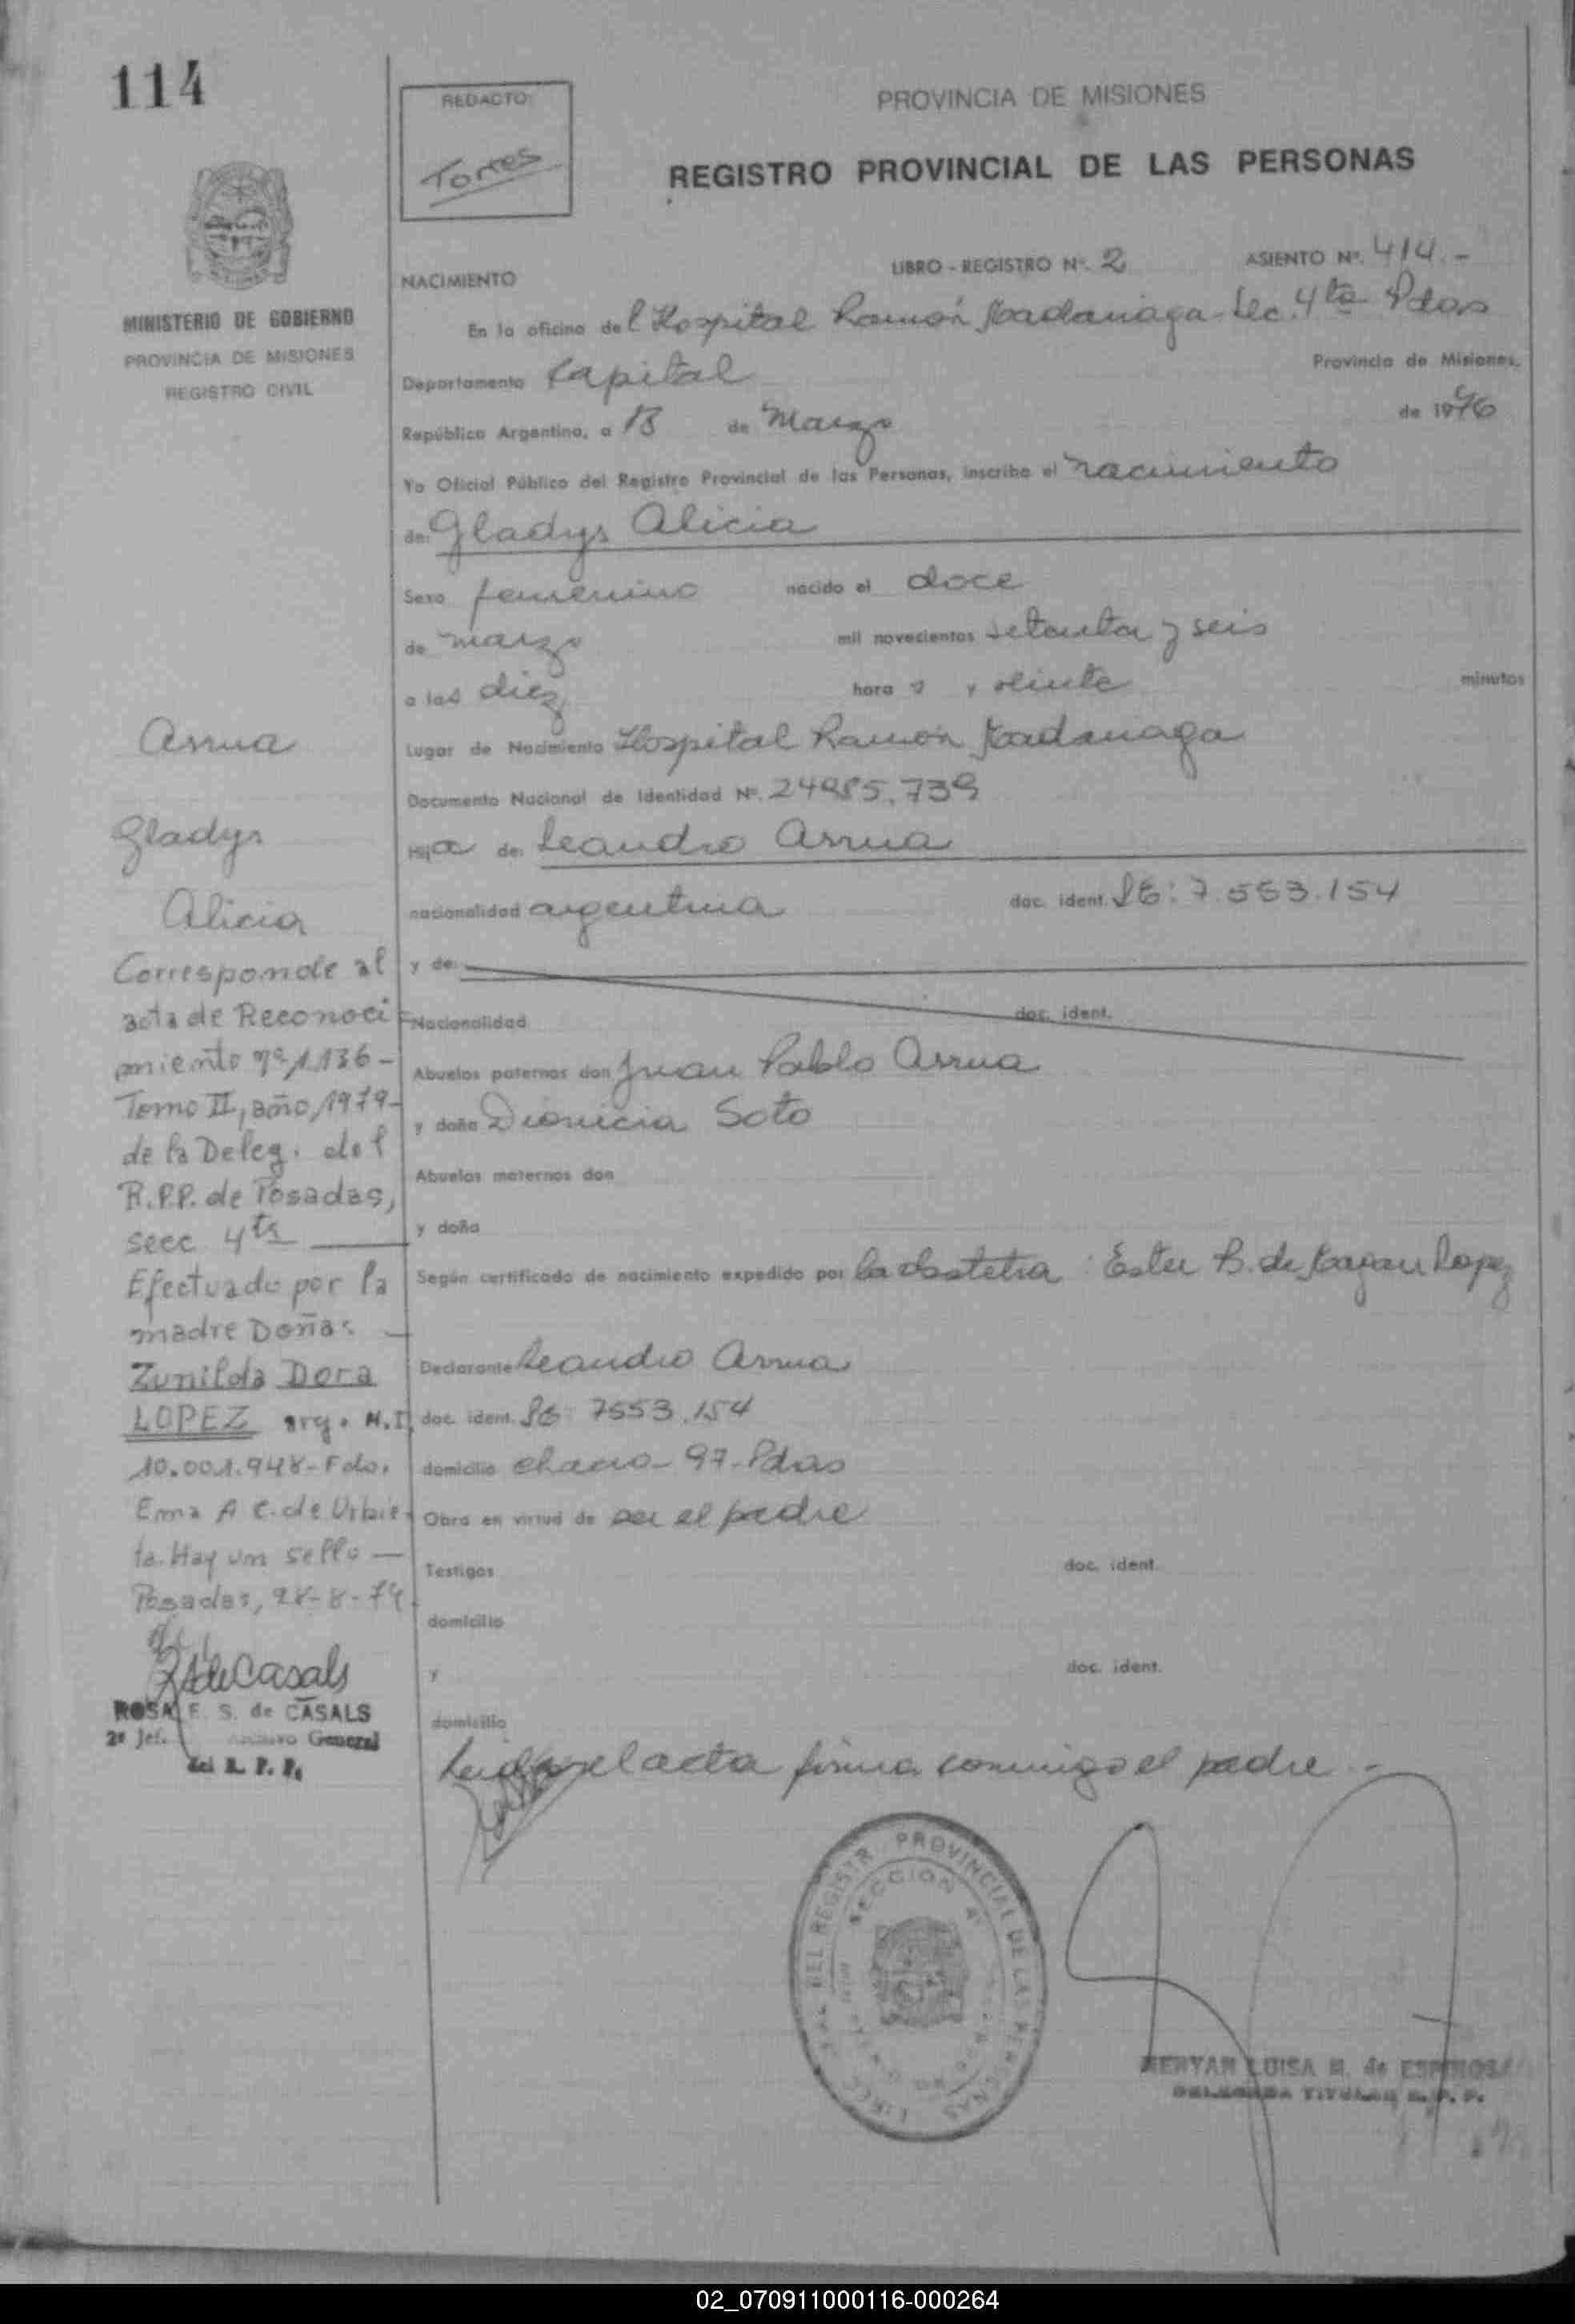 114
REDACTO:
Torres
PROVINCIA DE MISIONES
REGISTRO PROVINCIAL DE LAS PERSONAS
MINISTERIO DE GOBIERNO
PROVINCIA DE MISIONES
REGISTRO CIVIL
NACIMIENTO
LIBRO - REGISTRO Nº. 2
ASIENTO Nº. 414.-
En la oficina del Hospital Ramón Madariaga- Sec. 4ta Pdas
Departamento Capital Provincia de Misiones,
República Argentina, a 13 de Marzo de 1976
Yo Oficial Público del Registro Provincial de las Personas, inscribo el nacimiento
de: Gladys Alicia
Sexo femenino nacido el doce
de marzo mil novecientos setenta y seis
a las diez hora s y veinte minutos
Lugar de Nacimiento Hospital Ramón Madariaga
Documento Nacional de Identidad Nº. 24985.739
Hija de: Leandro Arrua
nacionalidad argentina doc. ident. LE: 7.553.154
y de:
Nacionalidad doc. ident.
Abuelos paternos don Juan Pablo Arrua
y doña Dionicia Soto
Abuelos maternos don
y doña
Según certificado de nacimiento expedido por la obstetra : Ester B. de Lopez
Declarante Leandro Arrua
doc. ident. LE 7553.154
domicilio chacra- 97- Pdas
Obra en virtud de ser el padre
Testigos doc. ident.
domicilio
y doc. ident.
domicilio
Leida el acta firma conmigo el padre.-
Arrua
Gladys
Alicia
Corresponde al
acta de Reconoci
miento nº 1.136-
Tomo II, año 1979-
de la Deleg. del
R.P.P. de Posadas,
secc 4ta
Efectuado por la
madre Doña:
Zunilda Dora
LOPEZ arg. M.I.
10.001.948- Fdo.
Ema A C. de Urbie
ta. Hay un sello
Posadas, 28-8-79
RSdeCasals
ROSA E. S. de CASALS
2º Jef. Archivo General
del R. P. P.
DEL REGISTR. PROVINCIAL DE LAS PERSONAS
SECCION 4ª
MERYAN LUISA M. de ESPINOSA
DELEGADA TITULAR R. P. P.
02_070911000116-000264